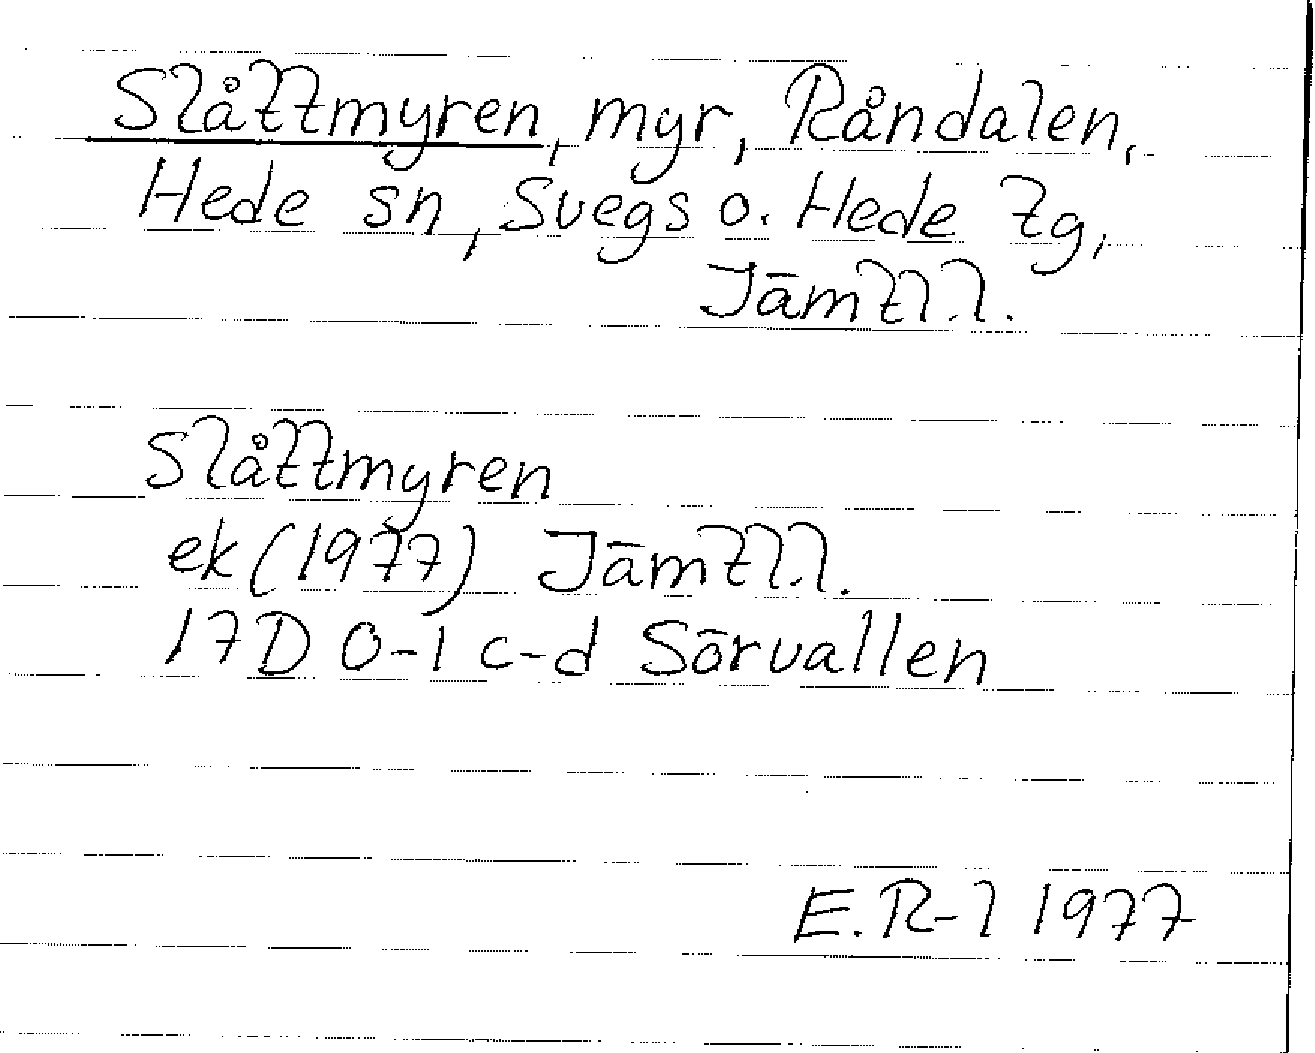 Slåttmyren, myr, Råndalen,
Hede sn, Svegs o. Hede tg,
Jämtl.l.
Slåttmyren
ek (1977) Jämtl.l.
17D 0-1 c-d Sörvallen
E.R-l 1977